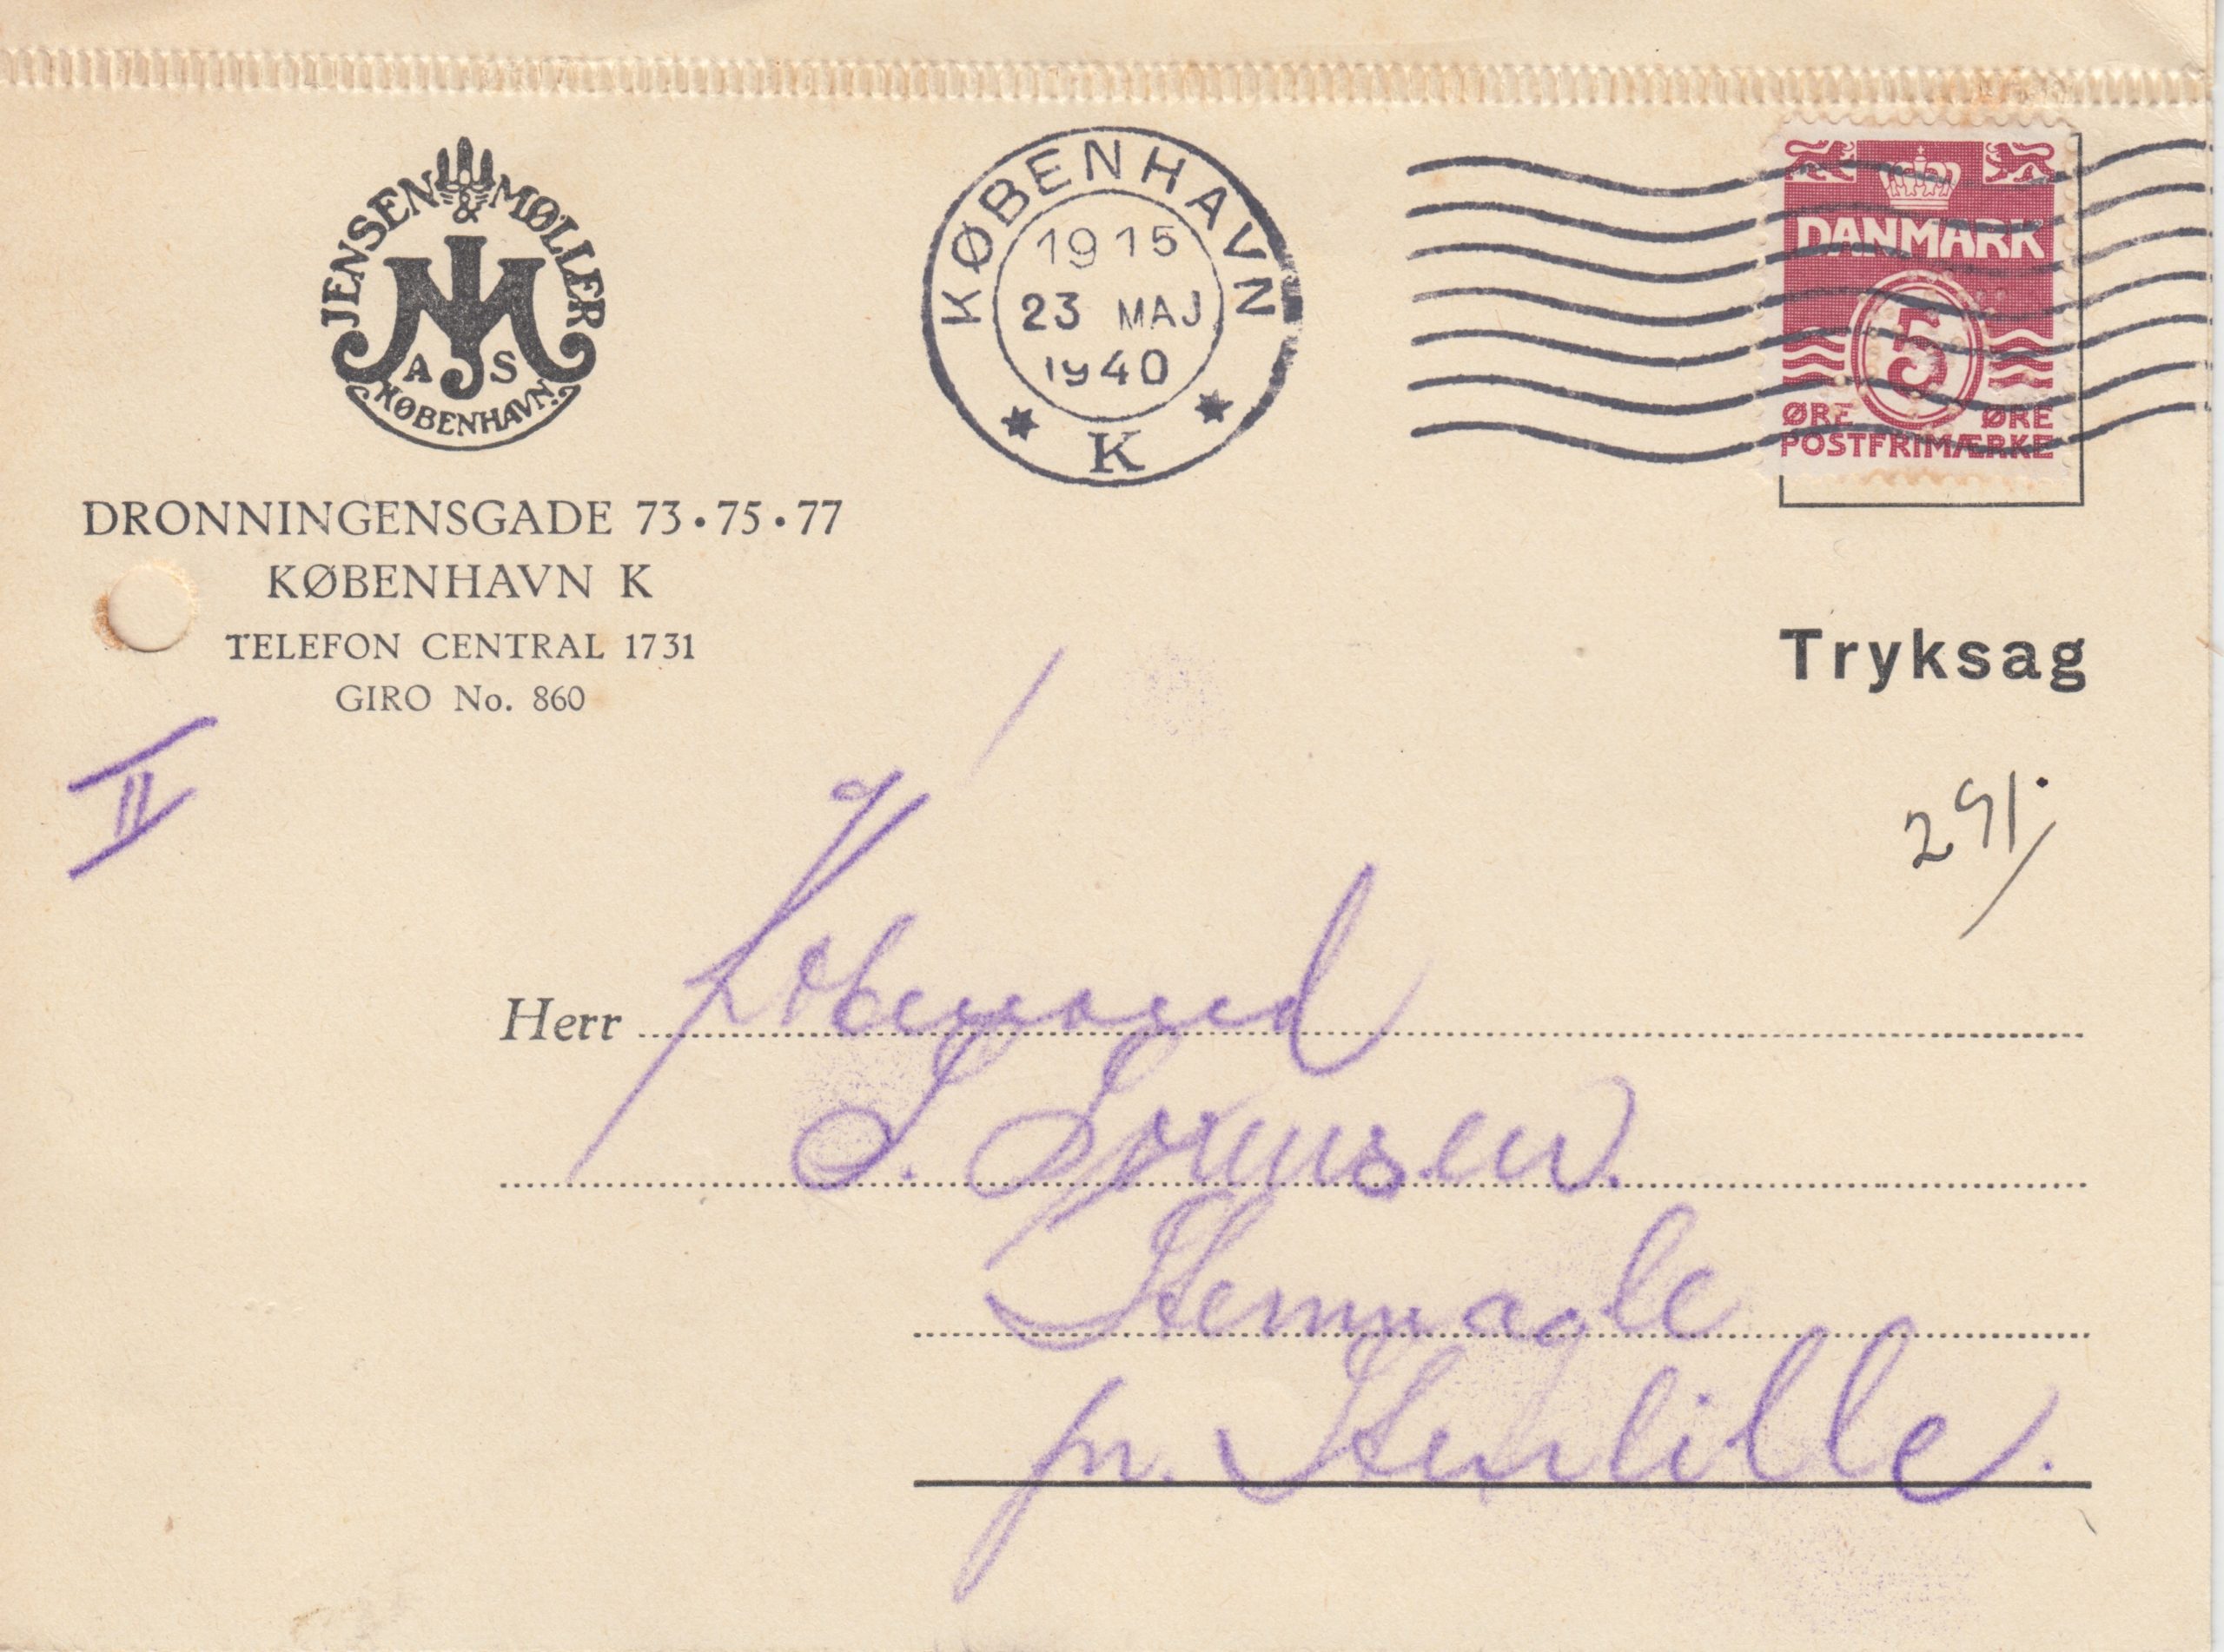 JENSEN & MØLLER
JM
A S
KØBENHAVN.
DRONNINGENSGADE 73 • 75 • 77
KØBENHAVN K
TELEFON CENTRAL 1731
GIRO No. 860
II
KØBENHAVN
19 15
23 MAJ
1940
K
DANMARK
5
ØRE ØRE
POSTFRIMÆRKE
Tryksag
291.
Herr Købmand
S. Sørensen.
Stennagle
pr. Stenlille.